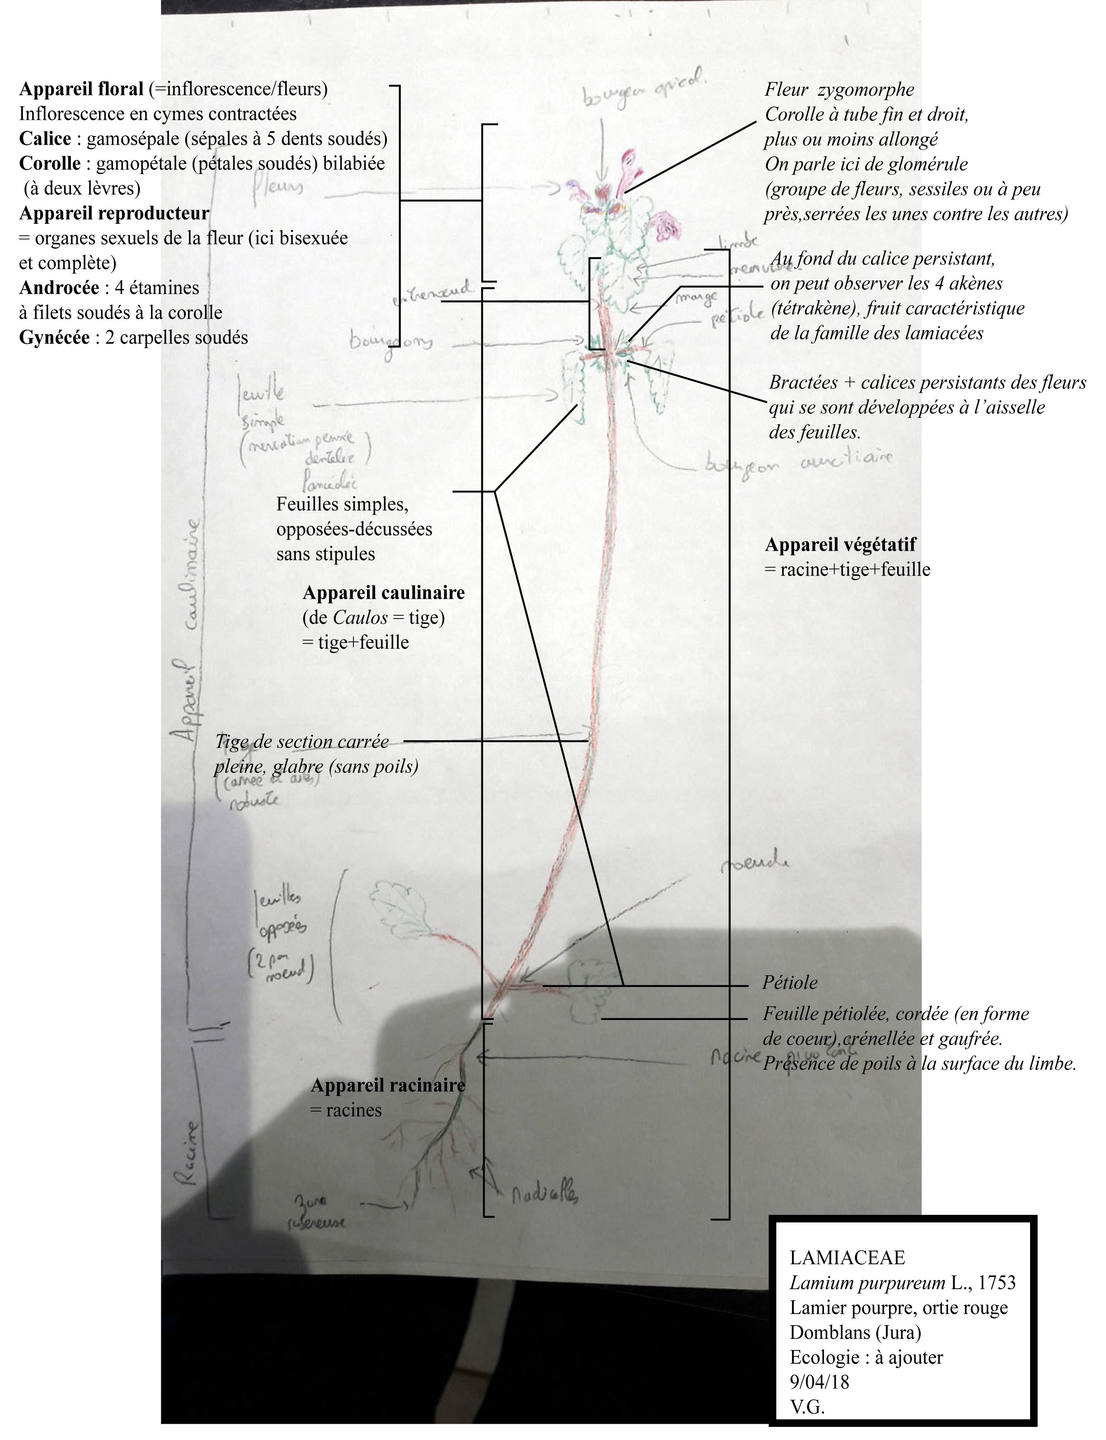 Appareil floral (=inflorescence/fleurs)
Inflorescence en cymes contractées
Calice : gamosépale (sépales à 5 dents soudés)
Corolle : gamopétale (pétales soudés) bilabiée
(à deux lèvres)
Appareil reproducteur
= organes sexuels de la fleur (ici bisexuée
et complète)
Androcée : 4 étamines
à filets soudés à la corolle
Gynécée : 2 carpelles soudés
bourgeon apical.
Fleur zygomorphe
Corolle à tube fin et droit,
plus ou moins allongé
On parle ici de glomérule
(groupe de fleurs, sessiles ou à peu
près,serrées les unes contre les autres)
fleurs
limbe
nervures
marge
pétiole
entrenoeud
bourgeons
Au fond du calice persistant,
on peut observer les 4 akènes
(tétrakène), fruit caractéristique
de la famille des lamiacées
Bractées + calices persistants des fleurs
qui se sont développées à l’aisselle
des feuilles.
feuille
simple
(nervation pennée
dentelée)
lancéolée
bourgeon auxiliaire
Feuilles simples,
opposées-décussées
sans stipules
Appareil végétatif
= racine+tige+feuille
Appareil caulinaire
(de Caulos = tige)
= tige+feuille
Appareil caulinaire
Tige de section carrée
pleine, glabre (sans poils)
robuste
noeud
feuilles
opposées
(2 par
noeud)
Pétiole
Feuille pétiolée, cordée (en forme
de coeur),crénellée et gaufrée.
Présence de poils à la surface du limbe.
racine pivotante
Appareil racinaire
= racines
Racine
radicelles
zone
subéreuse
LAMIACEAE
Lamium purpureum L., 1753
Lamier pourpre, ortie rouge
Domblans (Jura)
Ecologie : à ajouter
9/04/18
V.G.